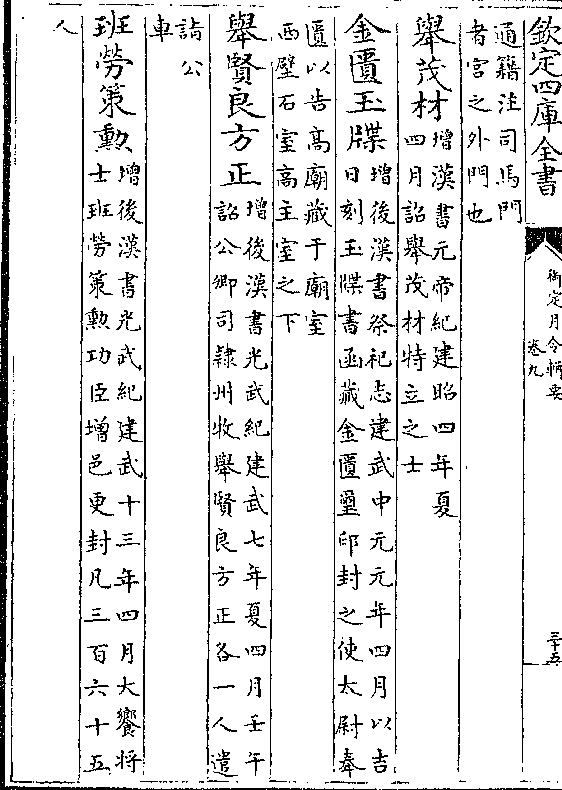 欽定四庫全書
御定月令輯要
卷九
三十五
通籍注司馬門
者宮之外門也
舉茂材
增漢書元帝紀建昭四年夏
四月詔舉茂材特立之士
金匱玉牒
增後漢書祭祀志建武中元元年四月以吉
日刻玉牒書函藏金匱璽印封之使太尉奉
匱以告高廟藏于廟室
西壁石室高主室之下
舉賢良方正
增後漢書光武紀建武七年夏四月壬午
詔公卿司隸州牧舉賢良方正各一人遣
詣公
車
班勞策勲
增後漢書光武紀建武十三年四月大饗將
士班勞策勲功臣增邑更封凡三百六十五
人